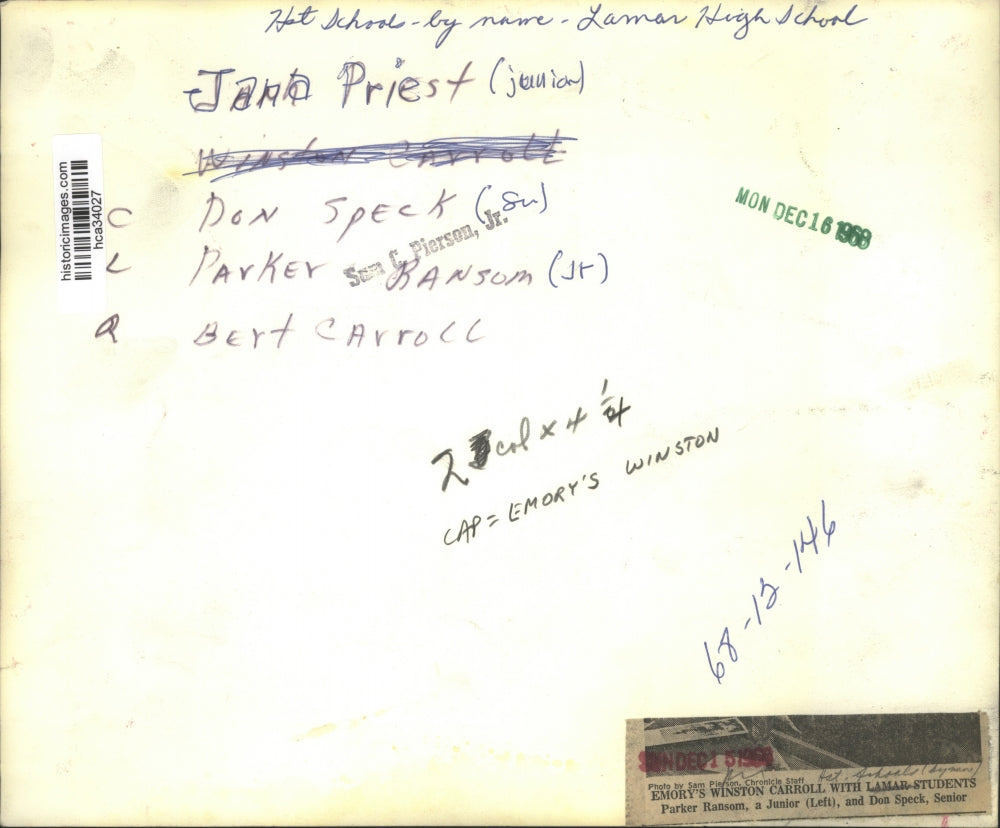 Hst Schools - by name - Lamar High School
Jana Priest (junion)
Winston Carroll
C Don Speck (Sn)
Sam C. Pierson, Jr.
MON DEC 16 1968
L Parker Ransom (Jr)
R Bert Carroll
historicimages.com
hca34027
2 col x 4 1/4
CAP = EMORY'S WINSTON
68-12-146
SUN DEC 15 1968
Hst. Schools (by name)
Photo by Sam Pierson, Chronicle Staff
EMORY'S WINSTON CARROLL WITH LAMAR STUDENTS
Parker Ransom, a Junior (Left), and Don Speck, Senior